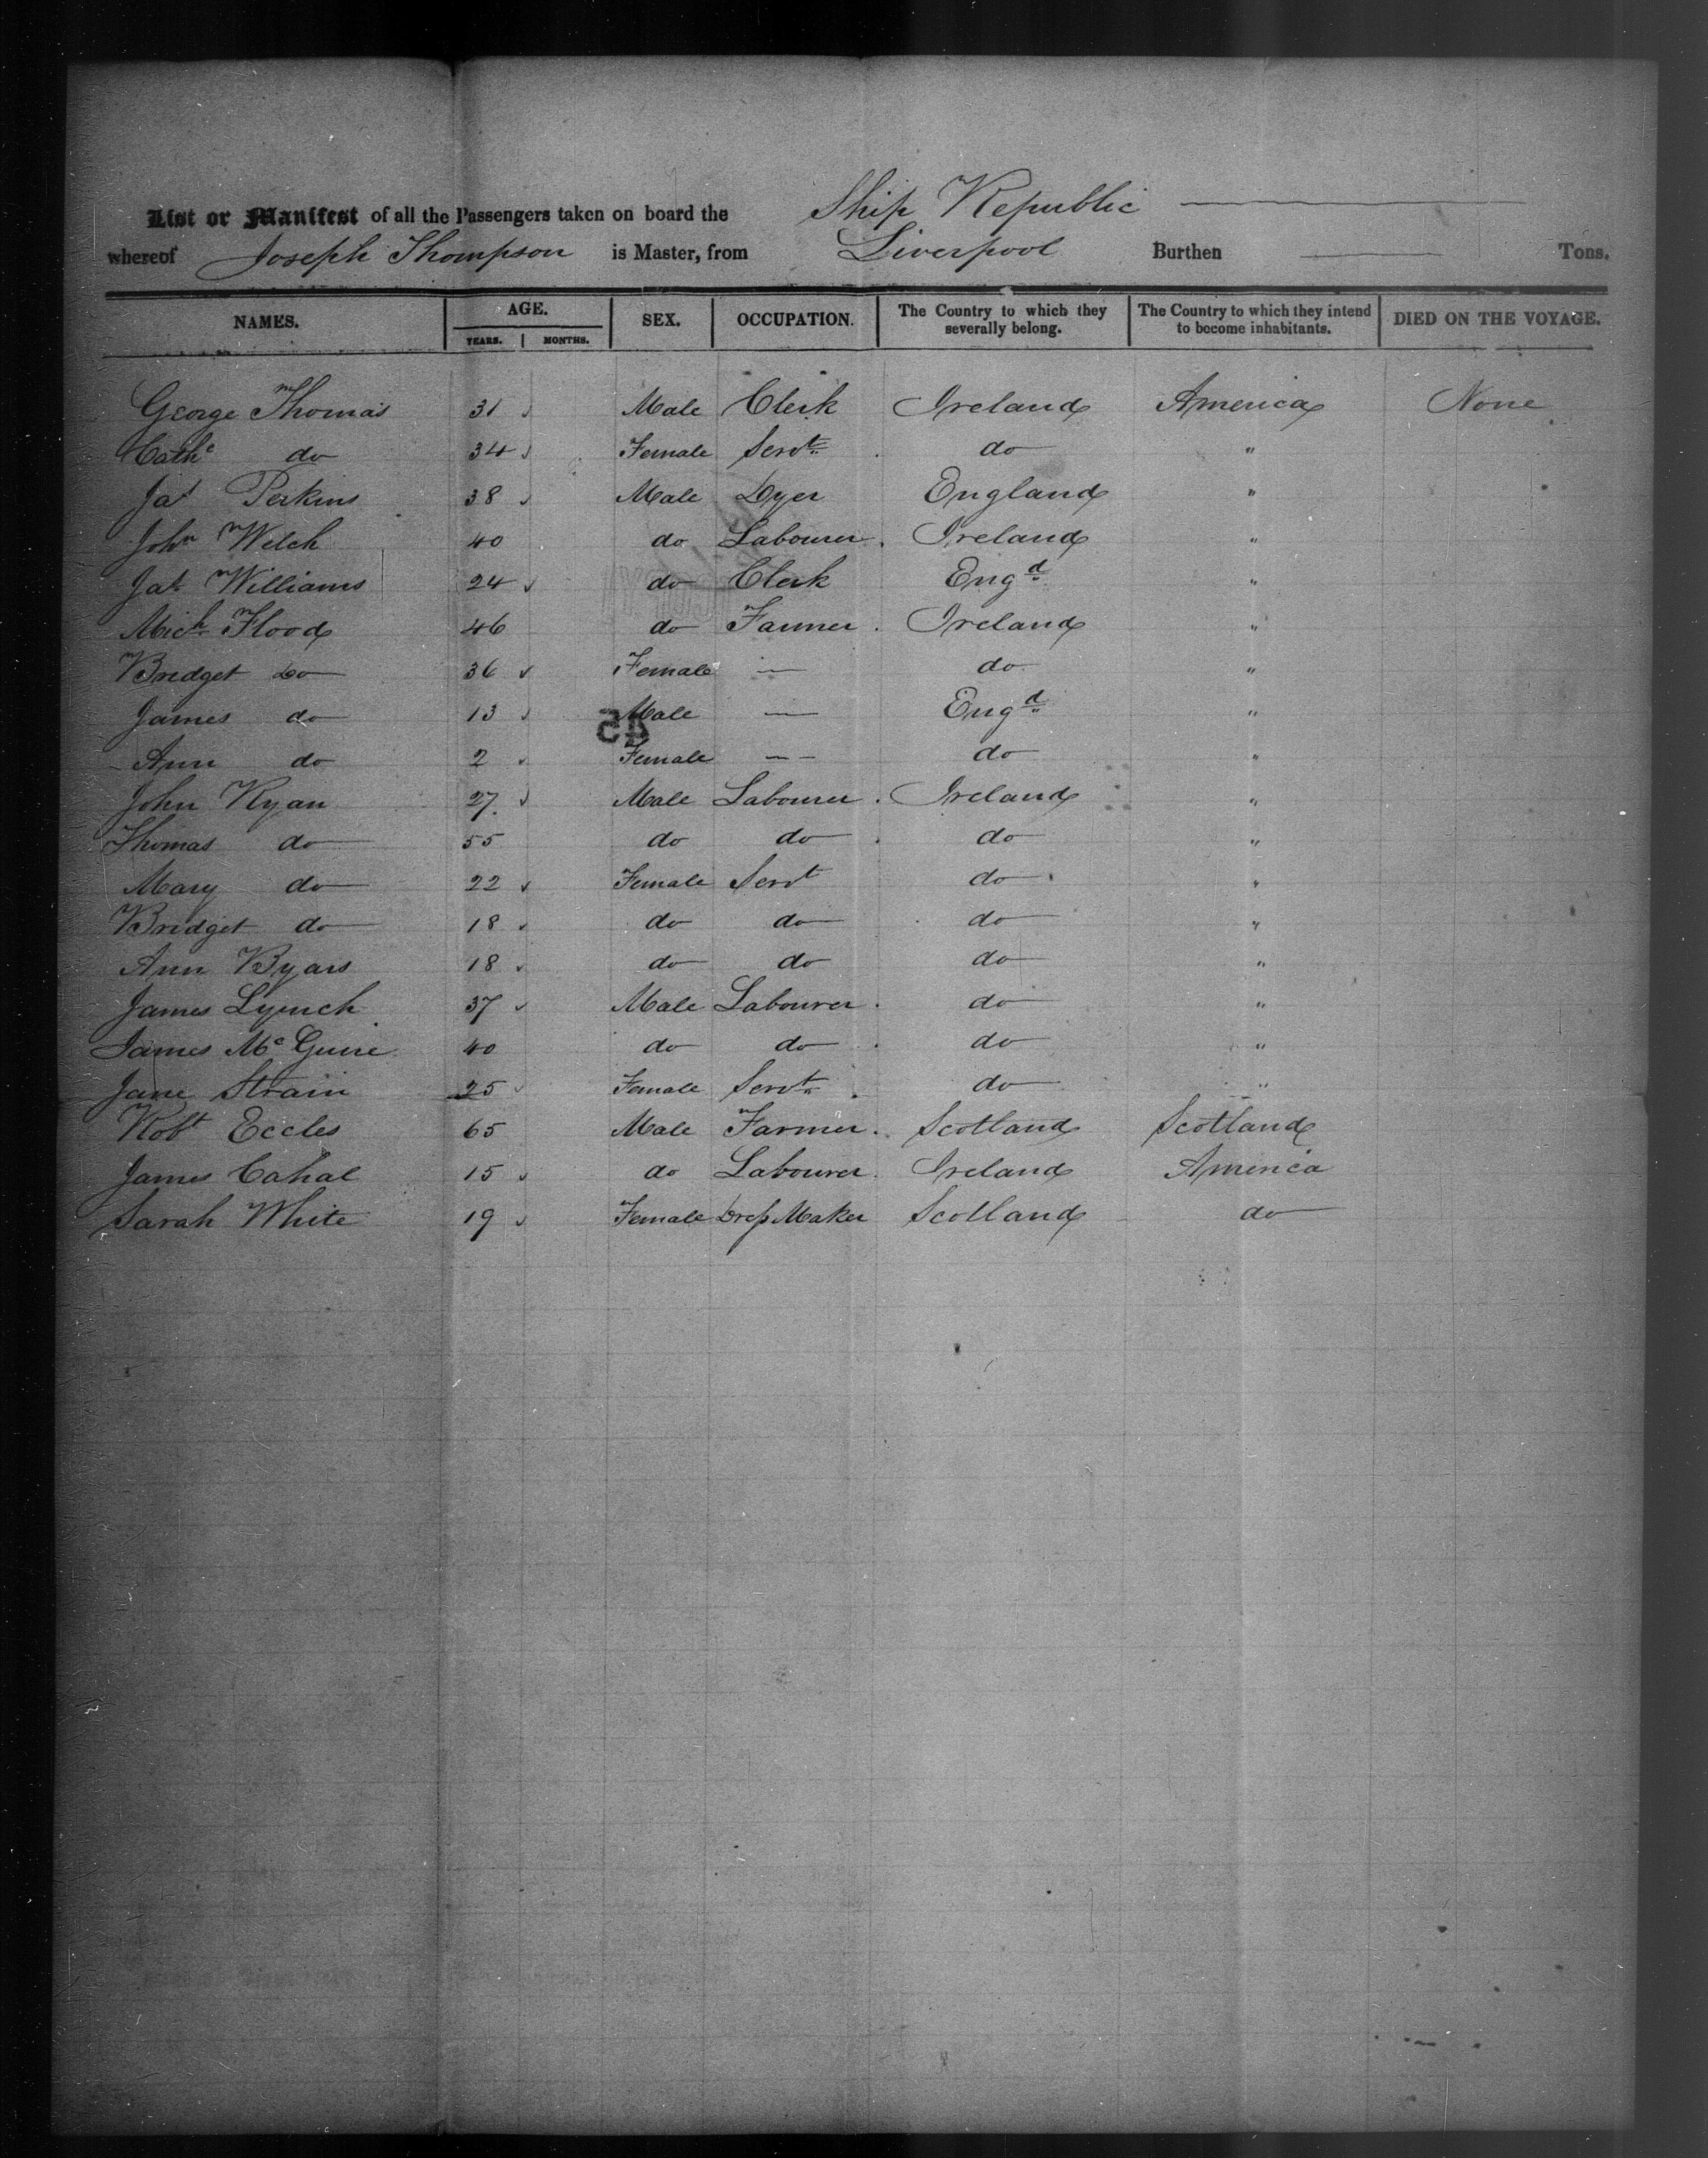 List or Manifest of all the Passengers taken on board the Ship Republic
whereof Joseph Thompson is Master, from Liverpool Burthen Tons.
NAMES. AGE. SEX. OCCUPATION. The Country to which they severally belong. The Country to which they intend to become inhabitants. DIED ON THE VOYAGE.
YEARS. MONTHS.
George Thomas 31 Male Clerk Ireland America None
Cathe do 34 Female Servt do "
Jas Perkins 38 Male Dyer England "
John Welch 40 do Labourer Ireland "
Jas Williams 24 do Clerk Engd "
Mich Flood 46 do Farmer Ireland "
Bridget Do 36 Female — do "
James do 13 Male — Engd "
Ann do 2 Female — do "
John Ryan 27 Male Labourer Ireland "
Thomas do 55 do do do "
Mary do 22 Female Servt do "
Bridget do 18 do do do "
Ann Byars 18 do do do "
James Lynch 37 Male Labourer do "
James McGuire 40 do do do "
Jane Strain 25 Female Servt do "
Robt Eccles 65 Male Farmer Scotland Scotland
James Cahal 15 do Labourer Ireland America
Sarah White 19 Female Dress Maker Scotland do